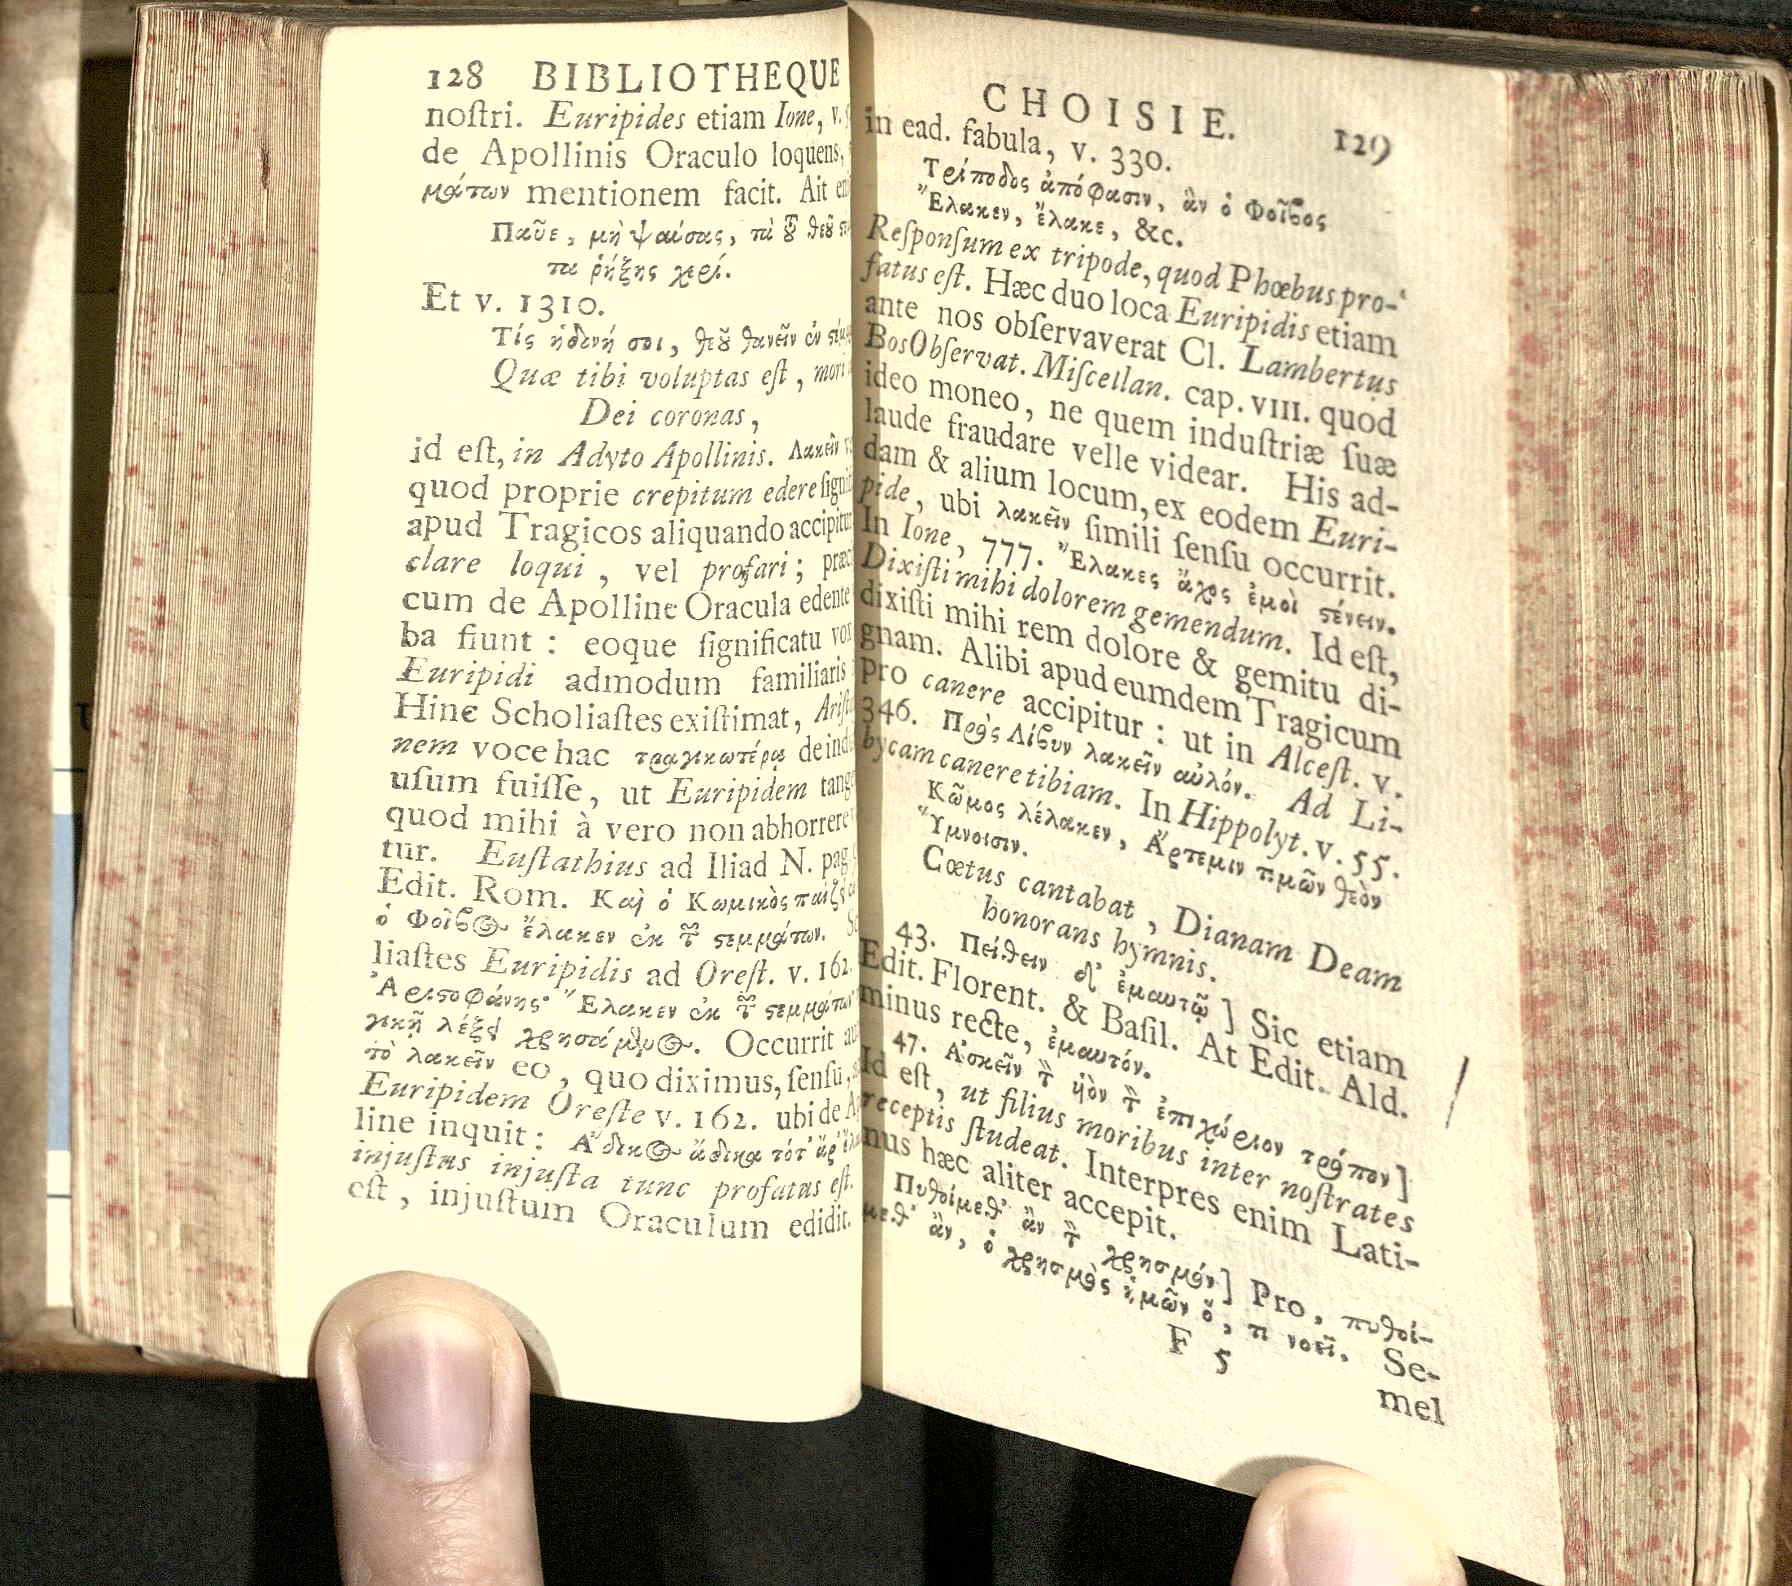 128 BIBLIOTHEQUE
noſtri. Euripides etiam Ione, v.
de Apollinis Oraculo loquens,
μάτων mentionem facit. Ait
Παῦε, μὴ ψαύσῃς, τὰ τοῦ θεοῦ
τα ῥήξῃς χερί.
Et v. 1310.
Τίς ἡδονή σοι, θεοῦ θανεῖν ἐν
Quæ tibi voluptas eſt, mori
Dei coronas,
id eſt, in Adyto Apollinis. Λακεῖν
quod proprie crepitum edere
apud Tragicos aliquando
clare loqui, vel profari;
cum de Apolline Oracula edente
ba fiunt: eoque ſignificatu
Euripidi admodum familiaris
Hinc Scholiaſtes exiſtimat,
nem voce hac τραγικωτέρᾳ
uſum fuiſſe, ut Euripidem
quod mihi à vero non abhorrere
tur. Euſtathius ad Iliad N. pag.
Edit. Rom. Καὶ ὁ Κωμικὸς
ὁ Φοῖβος ἔλακεν ἐκ τῶν στεμμάτων.
liaſtes Euripidis ad Oreſt. v. 162.
Ἀριστοφάνης· Ἔλακεν ἐκ τῶν
γικῇ λέξει χρησάμενος. Occurrit
τὸ λακεῖν eo, quo diximus, ſenſu,
Euripidem Oreſte v. 162. ubi de
line inquit: Ἄδικος ἄδικα τότ' ἄρ'
injuſtus injuſta tunc profatus eſt.
eſt, injuſtum Oraculum edidit.
CHOISIE. 129
in ead. fabula, v. 330.
Τρίποδος ἀπόφασιν, ἃν ὁ Φοῖβος
Ἔλακεν, ἔλακε, &c.
Reſponſum ex tripode, quod Phœbus pro-
fatus eſt. Hæc duo loca Euripidis etiam
ante nos obſervaverat Cl. Lambertus
Bos Obſervat. Miſcellan. cap. VIII. quod
ideo moneo, ne quem induſtriæ ſuæ
laude fraudare velle videar. His ad-
dam & alium locum, ex eodem Euri-
pide, ubi λακεῖν ſimili ſenſu occurrit.
In Ione, 777. Ἔλακες ἄχος ἐμοὶ στένειν.
Dixiſti mihi dolorem gemendum. Id eſt,
dixiſti mihi rem dolore & gemitu di-
gnam. Alibi apud eumdem Tragicum
pro canere accipitur: ut in Alceſt. v.
346. Πρὸς Λίβυν λακεῖν αὐλόν. Ad Li-
bycam canere tibiam. In Hippolyt. v. 55.
Κῶμος λέλακεν, Ἄρτεμιν τιμῶν θεὸν
Ὕμνοισιν.
Cœtus cantabat, Dianam Deam
honorans hymnis.
43. Πείθειν δ' ἐμαυτῷ] Sic etiam
Edit. Florent. & Baſil. At Edit. Ald.
minus recte, ἐμαυτόν.
47. Ἀσκεῖν τὸν υἱὸν τὸν ἐπιχώριον τρόπον]
Id eſt, ut filius moribus inter noſtrates
receptis ſtudeat. Interpres enim Lati-
nus hæc aliter accepit.
Πυθοίμεθ' ἂν τὸν χρησμόν] Pro, πυθοί-
μεθ' ἂν, ὁ χρησμὸς ἡμῶν ὅ, τι νοεῖ. Se-
F 5
mel